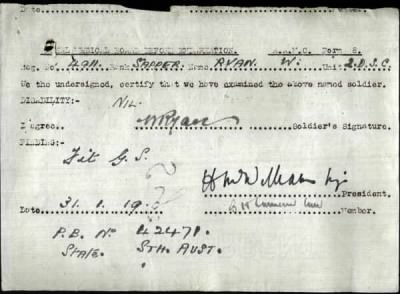 Date Place
MEDICAL BOARD BEFORE A.A.M.C. Form 8.
Reg. No. Rank SAPPER. Name RYAN. W. Unit 2.D.S.C.
We the undersigned, certify that we have examined the above named soldier.
DISABILITY:- NIL.
I agree WRyan Soldier's Signature.
FINDING:-
Fit G.S.
President.
Date 31. 1. 19. Member.
P.B. No 42478.
State. Sth Aust.